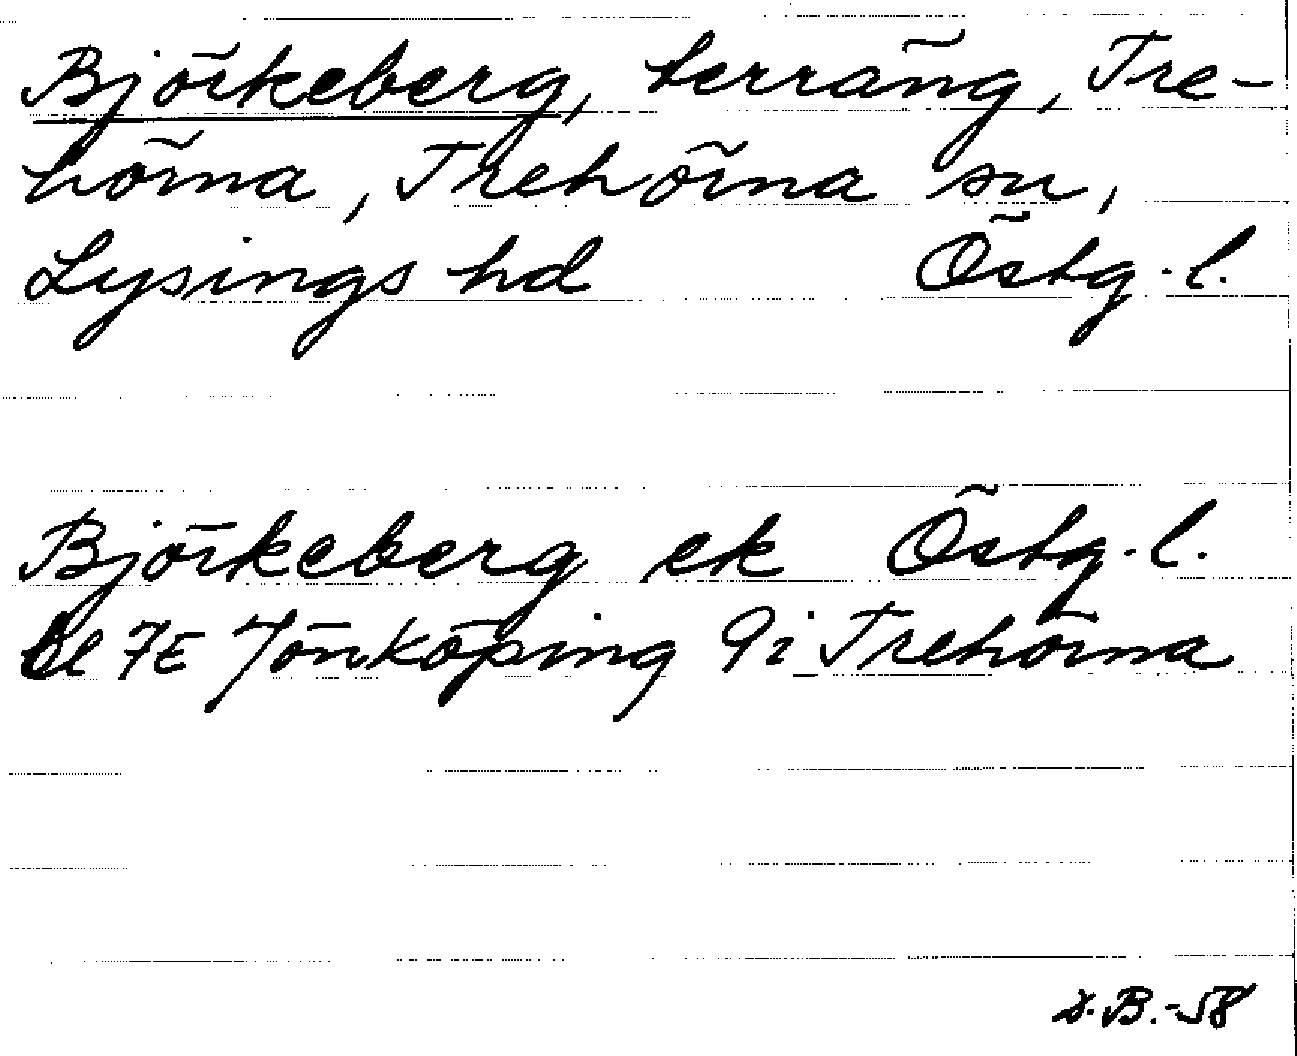 Björkeberg, terräng, Tre-
hörna, Trehörna sn,
Lysings hd Östg. l.
Björkeberg ek Östg. l.
bl 7E Jönköping 9i Trehörna
B.-58